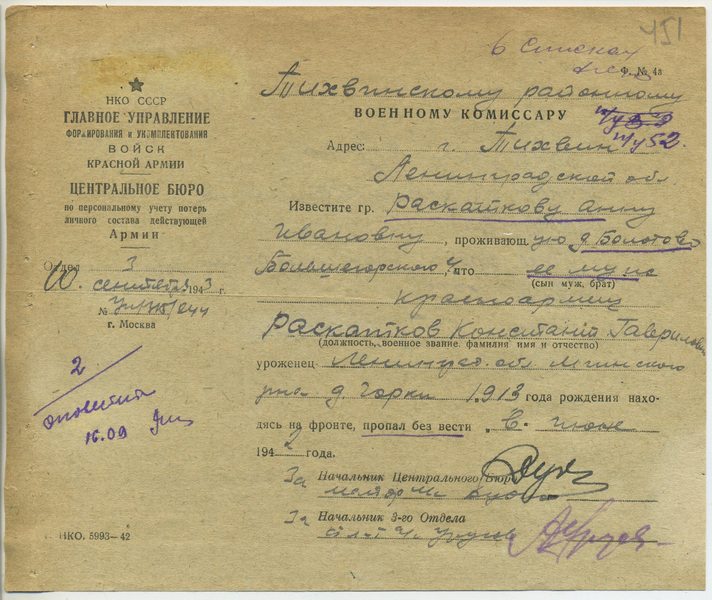 451
6 Списках
Ф. № 4з
НКО СССР
ГЛАВНОЕ УПРАВЛЕНИЕ
ФОРМИРОВАНИЯ и УКОМПЛЕКТОВАНИЯ
ВОЙСК
КРАСНОЙ АРМИИ
ЦЕНТРАЛЬНОЕ БЮРО
по персональному учету потерь
личного состава действующей
Армии
Отдел 3
10. сентября 1943 г.
№
г. Москва
2
оповестить
16.09
НКО. 5993—42
Тихвинскому районному
ВОЕННОМУ КОМИССАРУ
п/у 52.
Адрес: г. Тихвин
Ленинградской обл
Известите гр. Раскаткову Анну
Ивановну, проживающую д. Болотово
Большегорского, что ее муж
(сын муж, брат)
Красноармеец
Раскатков Константин Гаврилович
(должность, военное звание, фамилия имя и отчество)
уроженец Ленингр. обл Мгинского
рна д. Горки 1913 года рождения нахо-
дясь на фронте, пропал без вести в июне
1942 года.
За Начальник Центрального Бюро
майор
За Начальник 3-го Отдела